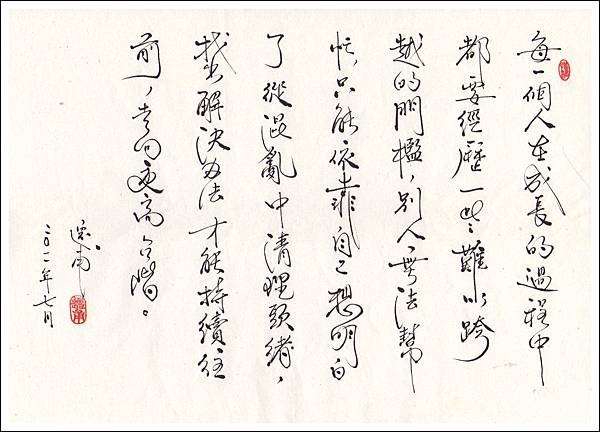 每一個人在成長的過程中
都要經歷一些難以跨
越的門檻，別人無法幫
忙，只能依靠自己想明白
了從混亂中清理頭緒，
找出解決办法才能持續往
前，走向更高台階。
年七月